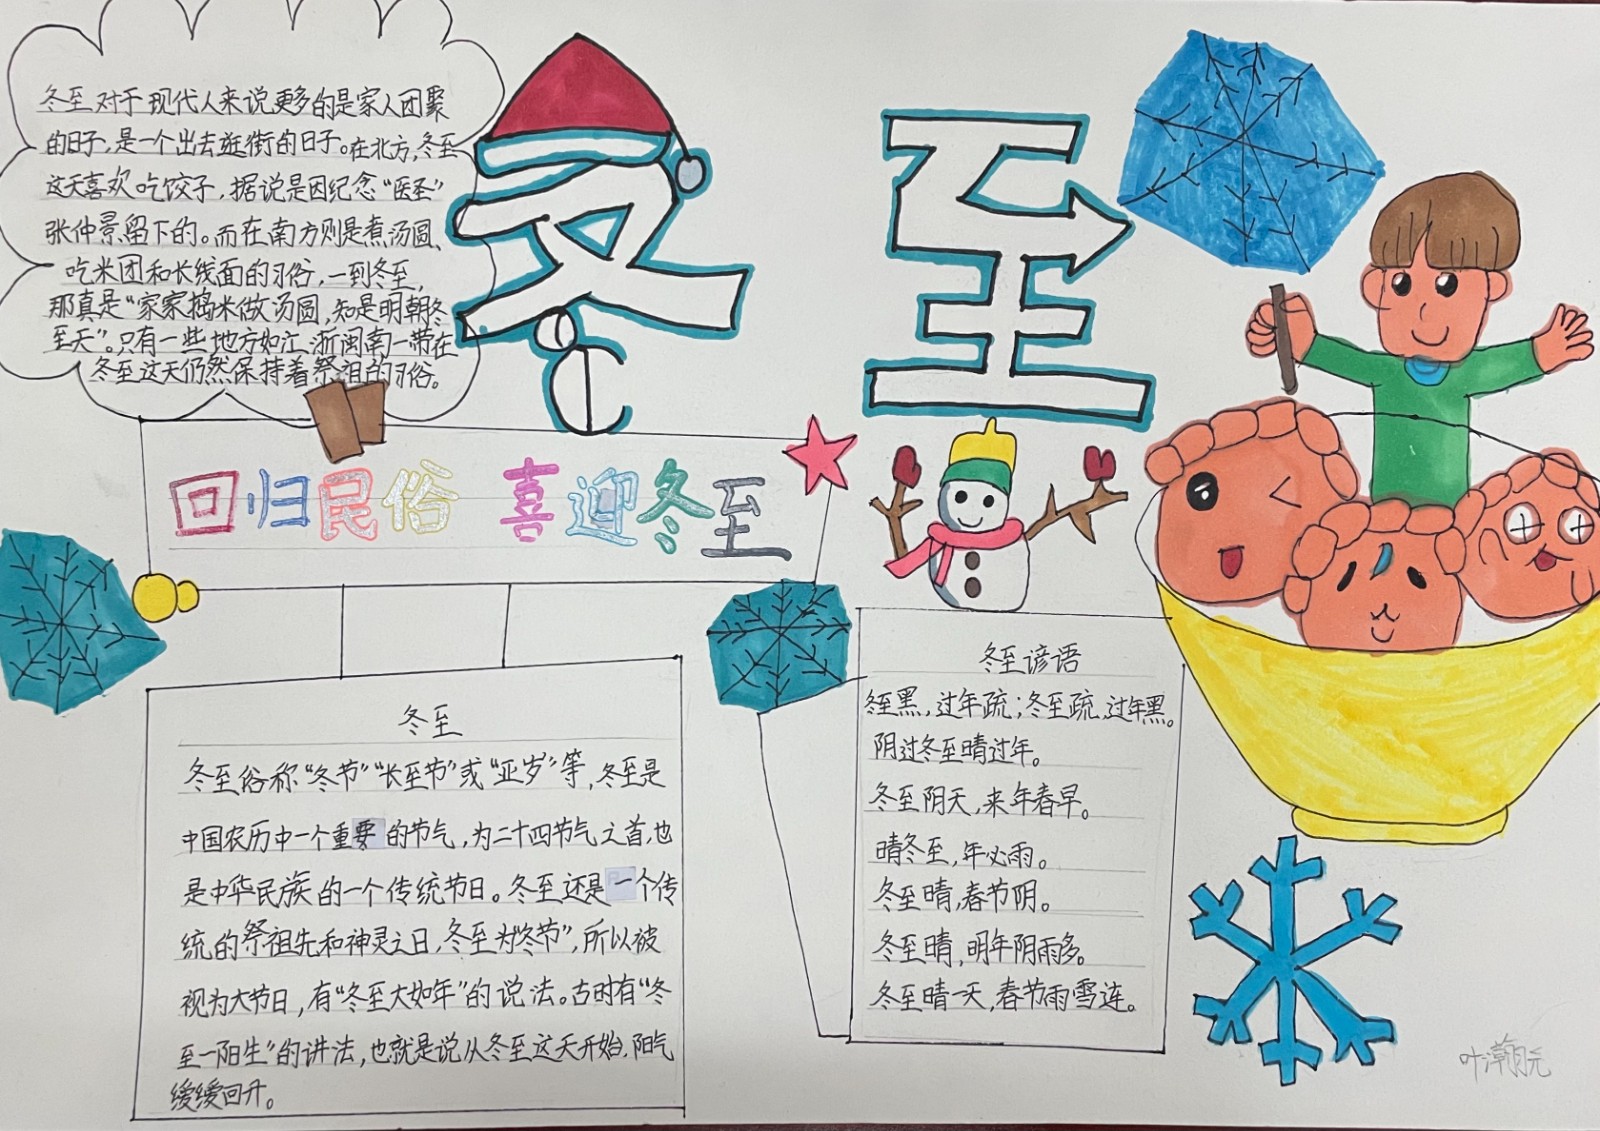 冬至
冬至对于现代人来说更多的是家人团聚
的日子,是一个出去逛街的日子。在北方,冬至
这天喜欢吃饺子,据说是因纪念“医圣”
张仲景留下的。而在南方则是煮汤圆、
吃米团和长线面的习俗,一到冬至,
那真是“家家捣米做汤圆,知是明朝冬
至天”。只有一些地方如江、浙闽南一带在
冬至这天仍然保持着祭祖的习俗。
回归民俗 喜迎冬至
冬至
冬至俗称“冬节”“长至节”或“亚岁”等,冬至是
中国农历中一个重要的节气,为二十四节气之首,也
是中华民族的一个传统节日。冬至还是一个传
统的祭祖先和神灵之日,冬至为“冬节”,所以被
视为大节日,有“冬至大如年”的说法。古时有“冬
至一阳生”的讲法,也就是说从冬至这天开始,阳气
缓缓回升。
冬至谚语
冬至黑,过年疏;冬至疏,过年黑。
阴过冬至晴过年。
冬至阴天,来年春早。
晴冬至,年必雨。
冬至晴,春节阴。
冬至晴,明年阴雨多。
冬至晴一天,春节雨雪连。